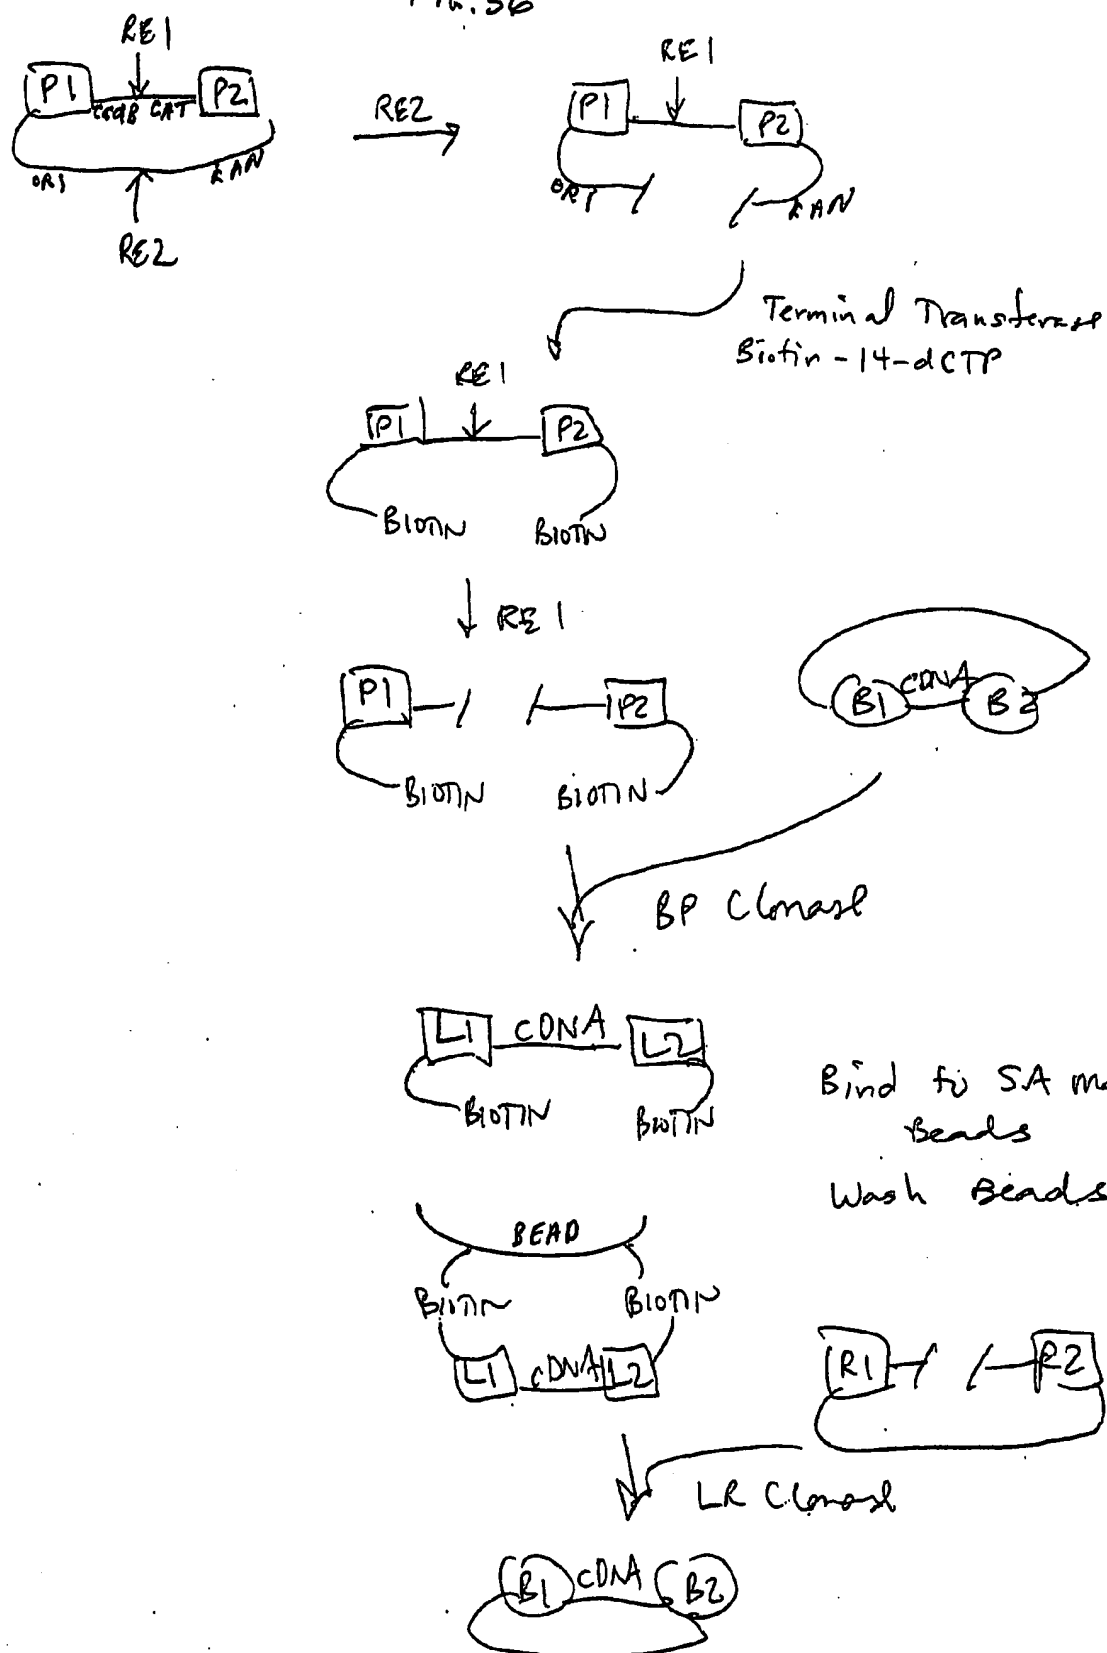 FIG. 36
RE1
P1 ccdB CAT P2
ORI KAN
RE2
RE2
RE1
P1 P2
ORI KAN
Terminal Transferase
Biotin-14-dCTP
RE1
P1 P2
BIOTIN BIOTIN
RE1
P1 P2
BIOTIN BIOTIN
B1 cDNA B2
BP Clonase
L1 cDNA L2
BIOTIN BIOTIN
Bind to SA
Beads
Wash Beads
BEAD
BIOTIN BIOTIN
L1 cDNA L2
R1 R2
LR Clonase
B1 cDNA B2